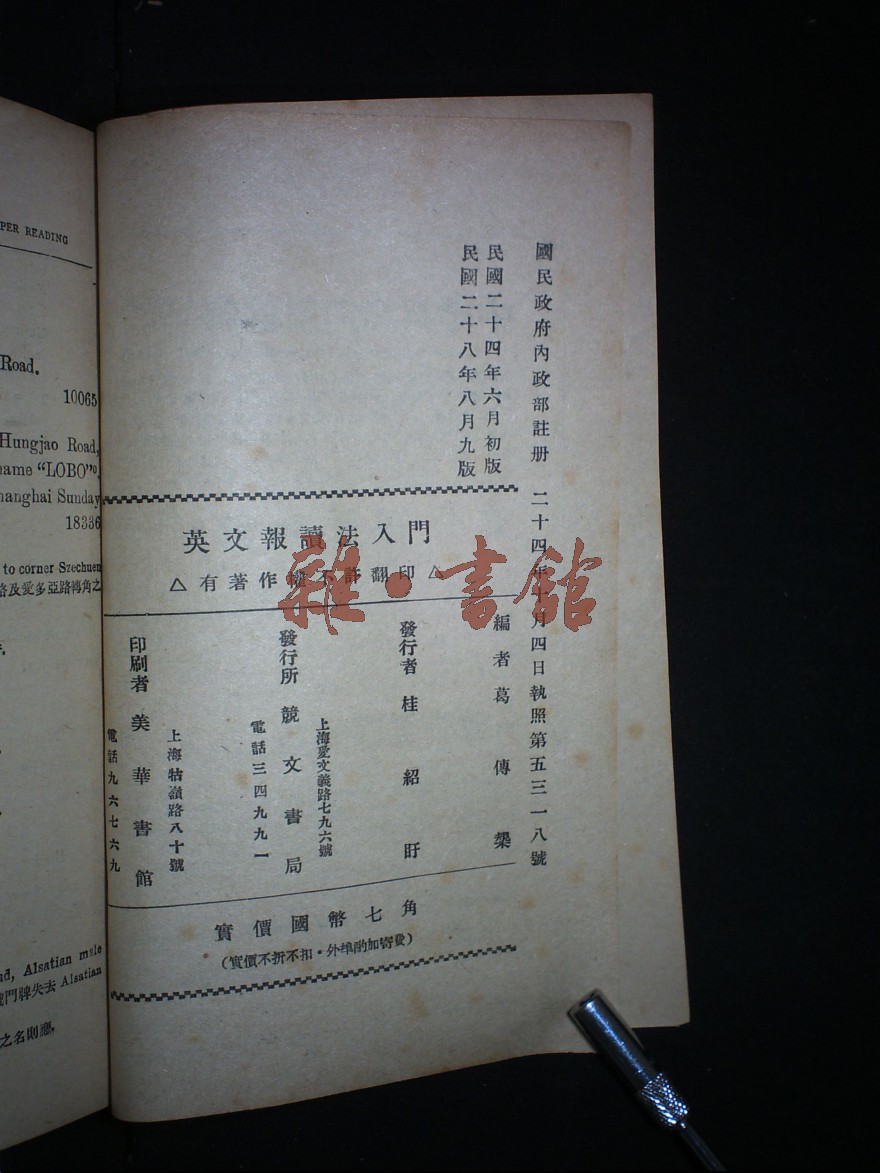 PER READING
Road.
10065
Hungjao Road,
name "LOBO"
hanghai Sunday
18336
to corner Szechuen
路及愛多亞路轉角之
nd, Alsatian male
門牌失去 Alsatian
之名則應,
國民政府內政部註册 二十四年 月四日執照第五三一八號
民國二十四年六月初版
民國二十八年八月九版
英文報讀法入門
△有著作權不許翻印△
編者葛傳槼
發行者桂紹盱
上海愛文義路七九六號
發行所競文書局
電話三四九九一
上海牯嶺路八十號
印刷者美華書館
電話九六七六九
實價國幣七角
(實價不折不扣·外埠酌加寄費)
雜·書館